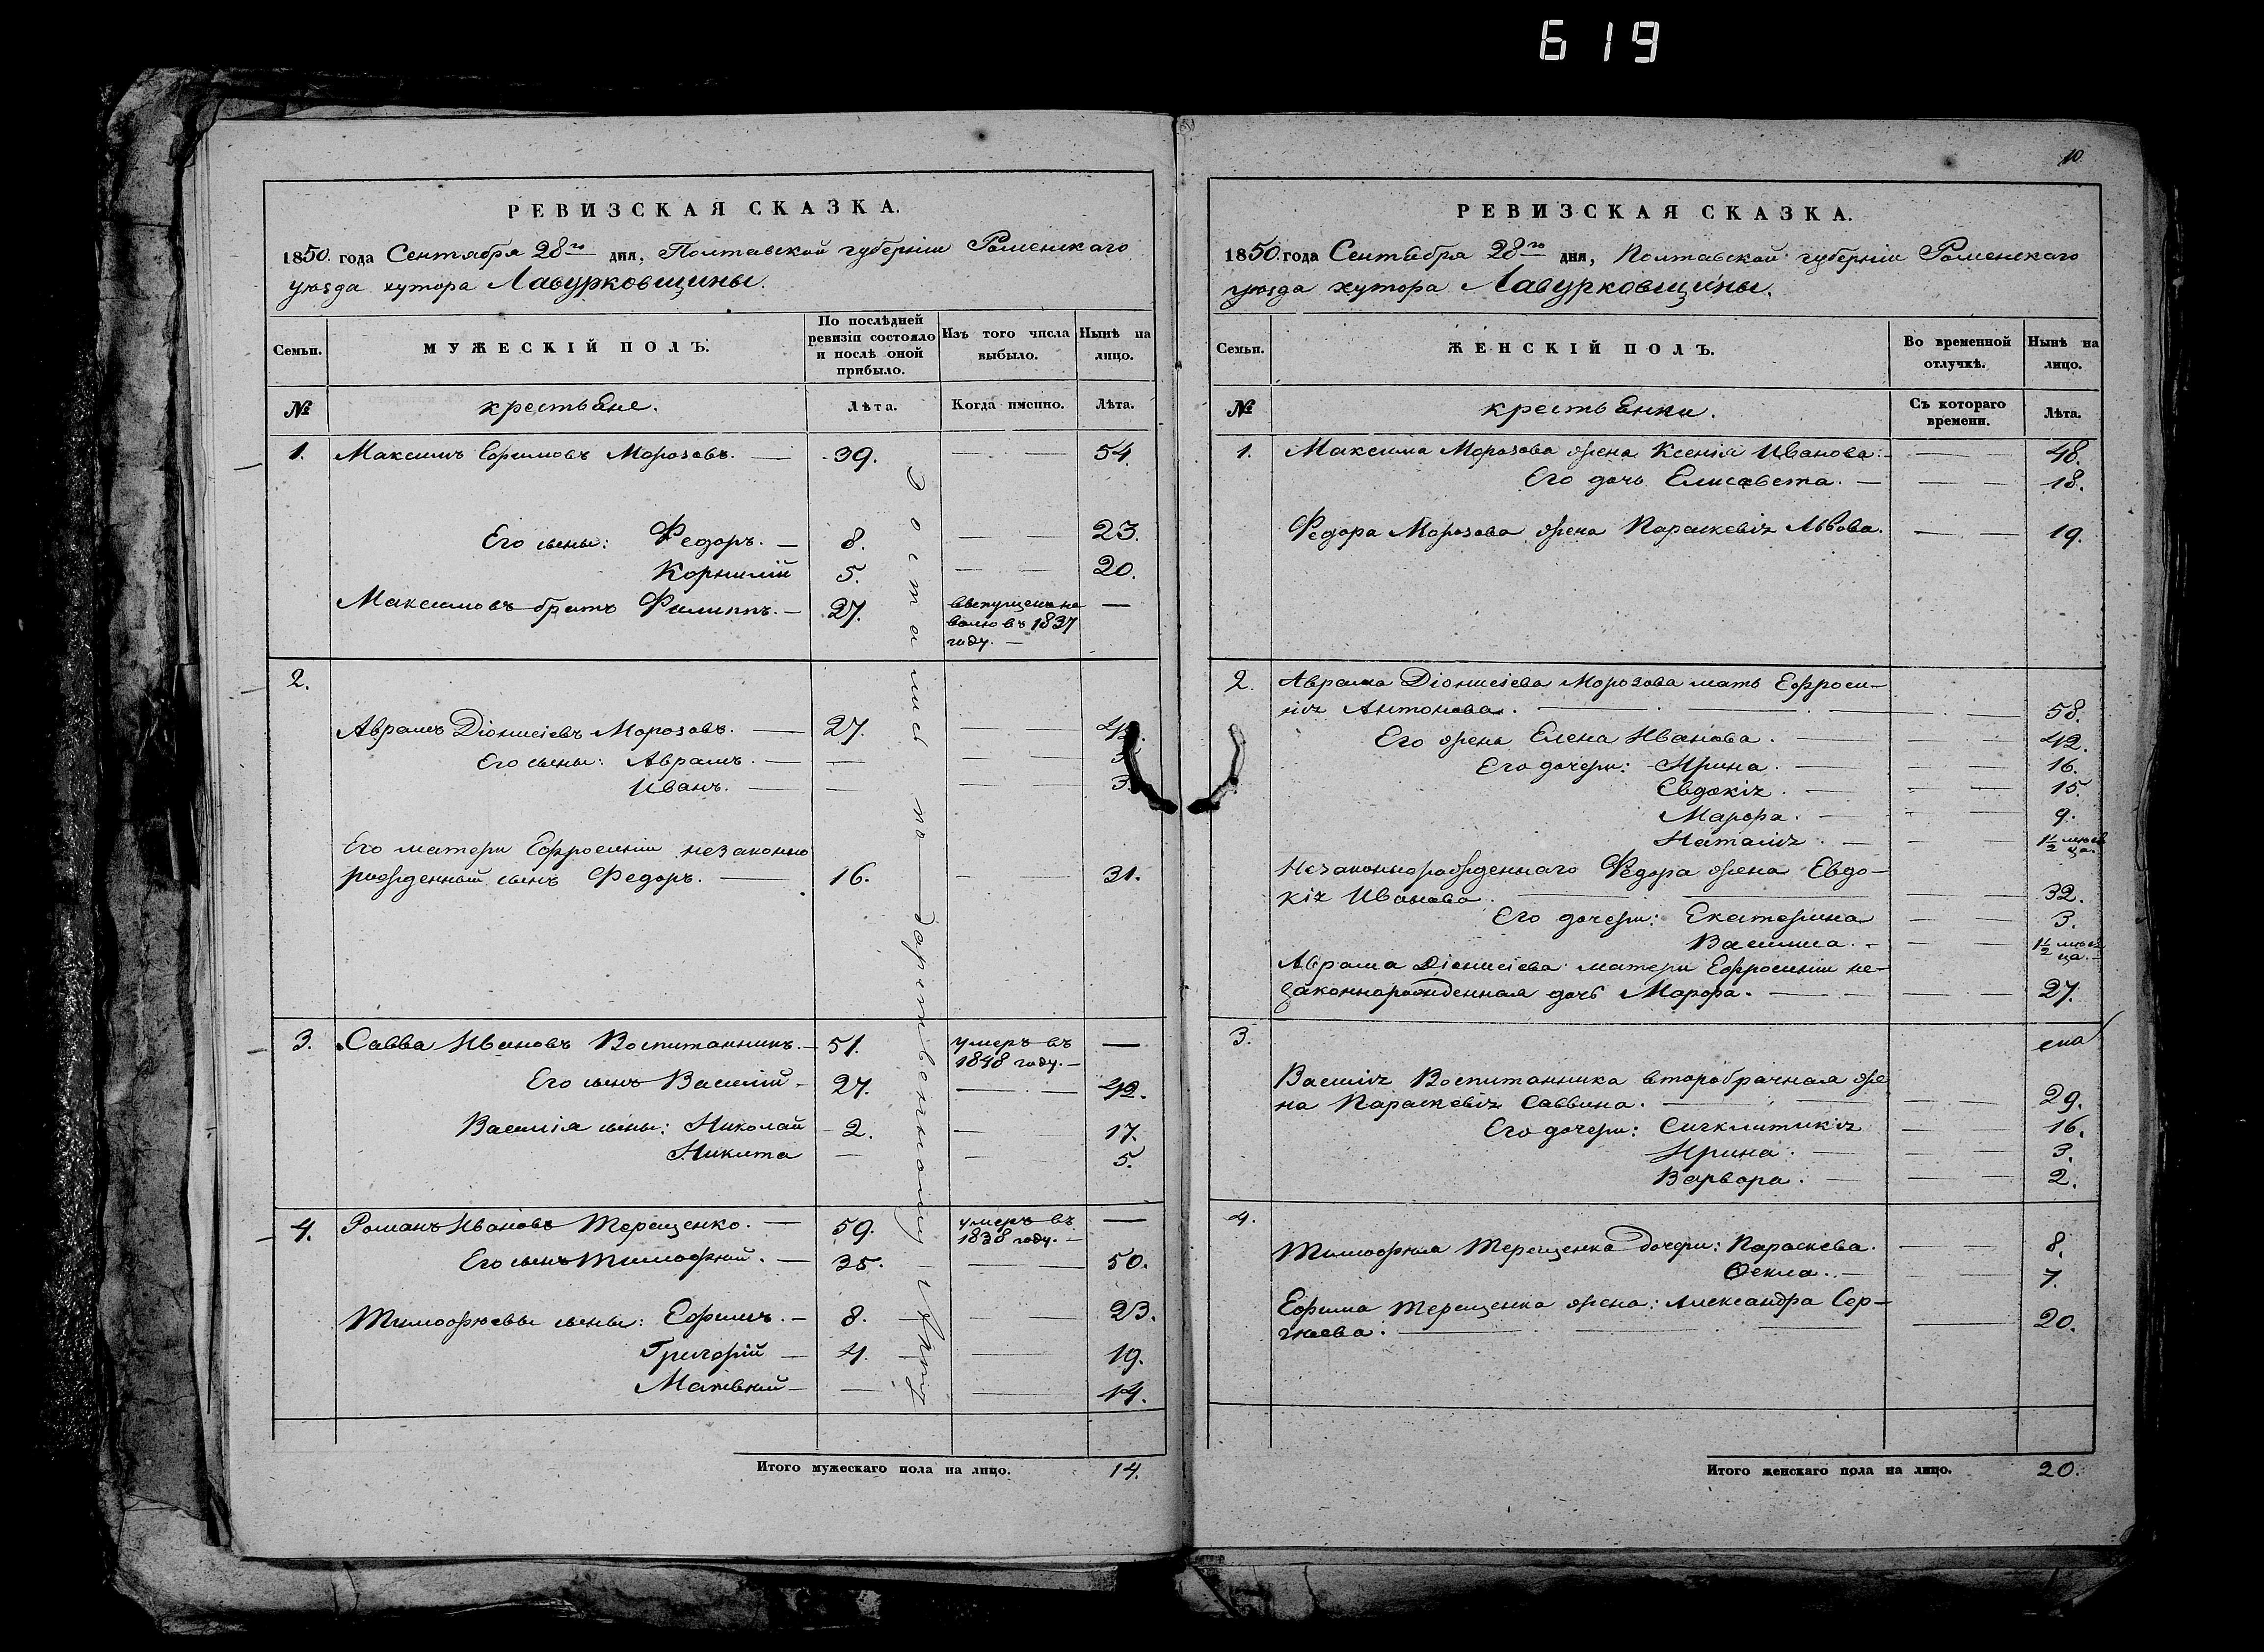 619
РЕВИЗСКАЯ СКАЗКА.
1850 года Сентября 28го дня, Полтавской губерніи Роменскаго
уѣзда хутора Лавурковщины.
Семьи.
МУЖЕСКІЙ ПОЛЪ.
По послѣдней ревизіи состояло и послѣ оной прибыло.
Изъ того числа выбыло.
Нынѣ на лицо.
№
крестьяне.
Лѣта.
Когда именно.
Лѣта.
1. Максимъ Ефимовъ Морозовъ. — 39. — — 54.
Его сыны: Федоръ. — 8. — — 23.
Корнилій 5. — — 20.
Максимовъ братъ Филиппъ. — 27. выпущенъ на —
волю въ 1837
году. —
2.
Аврамъ Діонисіевъ Морозовъ. — 27. — —
Его сыны: Аврамъ. — — — —
Иванъ. — — — — 3.
Его матери Ефросиніи незаконно
рожденный сынъ Федоръ. — 16. — — 31.
3. Савва Ивановъ Воспитанникъ. — 51. умеръ въ —
1848 году. —
Его сынъ Василій — 27. — — 42.
Василія сыны: Николай 2. — 17.
Никита — — 5.
4. Романъ Ивановъ Терещенко. — 59. умеръ въ —
1838 году. —
Его сынъ Тимофѣй. — 35. — — 50.
Тимофѣевы сыны: Ефимъ. — 8. — — 23.
Григорій — 4. — 19.
Матвѣй — — — 14.
Достались по дарственному
Итого мужескаго пола на лицо. 14.
10
РЕВИЗСКАЯ СКАЗКА.
1850 года Сентября 28го дня, Полтавской губерніи Роменскаго
уѣзда хутора Лавурковщины.
Семьи.
ЖЕНСКІЙ ПОЛЪ.
Во временной отлучкѣ.
Нынѣ на лицо.
№
крестьянки.
Съ котораго времени.
Лѣта.
1. Максима Морозова жена Ксенія Иванова. — — — 48.
Его дочь Елисавета. — — — 18.
Федора Морозова жена Параскевія Львова. — — 19.
2. Аврама Діонисіева Морозова мать Ефроси-
нія Антонова. — — — 58.
Его жена Елена Иванова. — — — 42.
Его дочери: Ирина. — — — 16.
Евдокія. — — — 15.
Марфа. — — — 9.
Наталія. — — — 1½ мѣся
ца.
Незаконнорожденнаго Федора жена Евдо-
кія Иванова. — — — 32.
Его дочери: Екатерина — — 3.
Василиса. — — — 1½ мѣся
ца. —
Аврама Діонисіева матери Ефросиніи не-
законнорожденная дочь Марфа. — — — 27.
3.
Василія Воспитанника второбрачная же
на Параскевія Саввина. — — — 29.
Его дочери: Сигклитикія — 16.
Ирина. — — — 3.
Варвара. — — — 2.
4.
Тимофѣя Терещенка дочери: Параскева. — — 8.
Ѳекла. — — — 7.
Ефима Терещенка жена: Александра Сер-
гѣева. — — — 20.
Итого женскаго пола на лицо. 20.